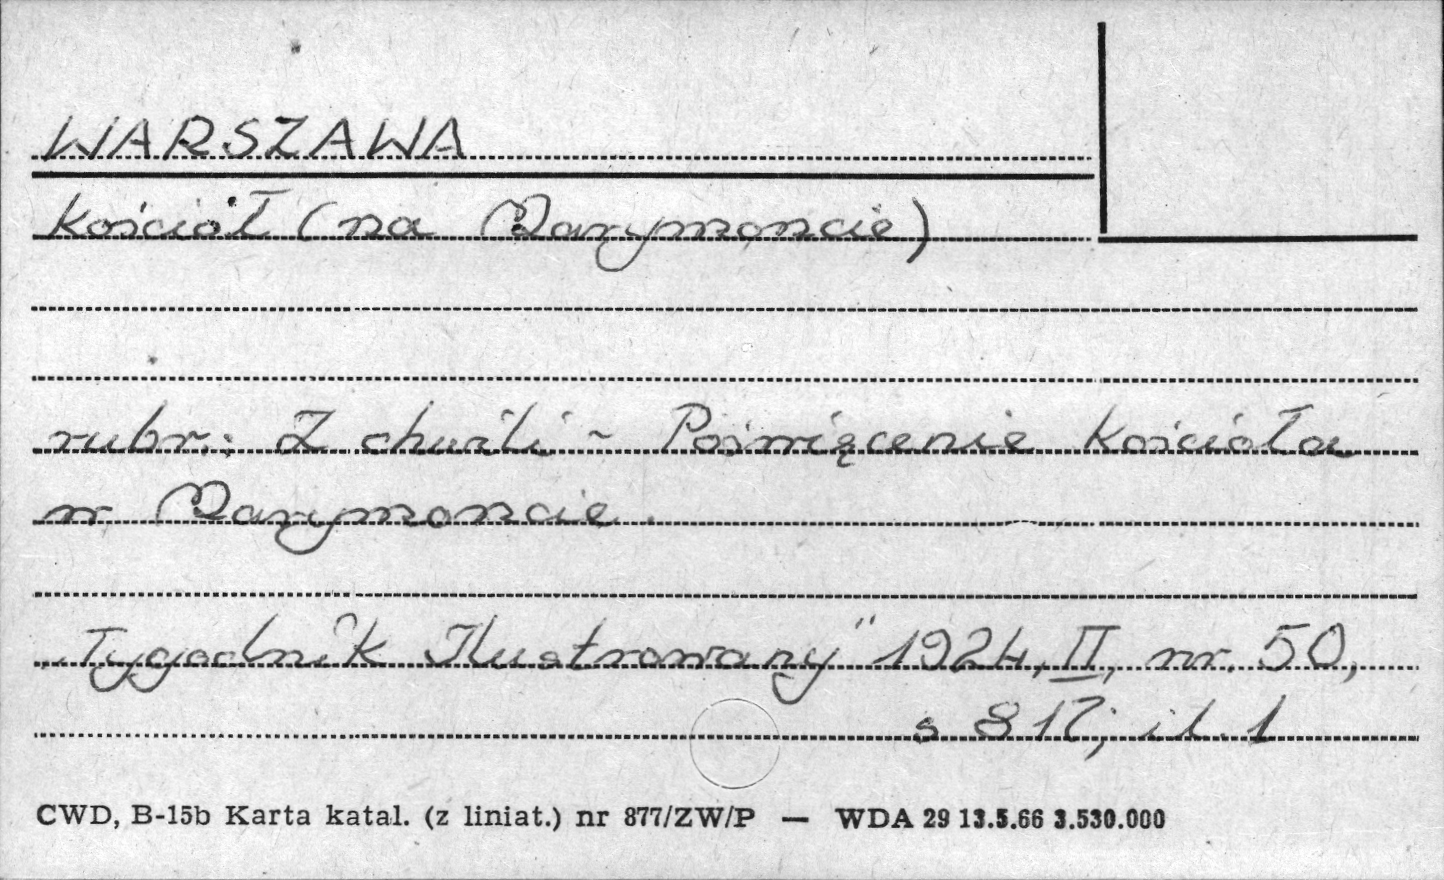 WARSZAWA
Kościół (na Marymoncie)
rubr.: Z chwili - Poświęcenie Kościoła
w Marymoncie.
„Tygodnik Ilustrowany" 1924, II, nr. 50,
s 817; il. 1
CWD, B-15b Karta katal. (z liniat.) nr 877/ZW/P — WDA 29 13.5.66 3.530.000